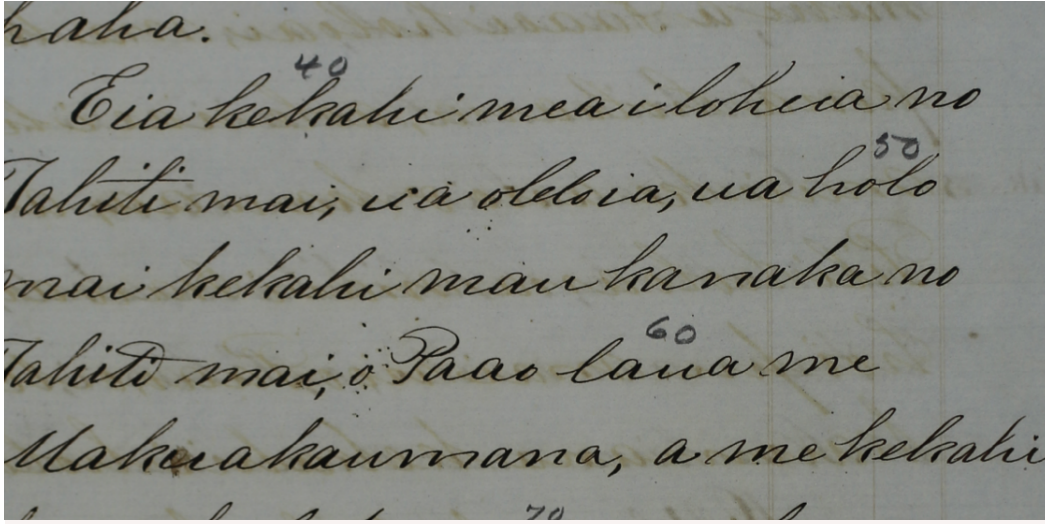 haha.
40
Eia kekahi mea i loheia no
50
Tahiti mai, ua oleloia, ua holo
mai kekahi mau kanaka no
60
Tahiti mai, o Paao laua me
Makuakaumana, a me kekahi
70